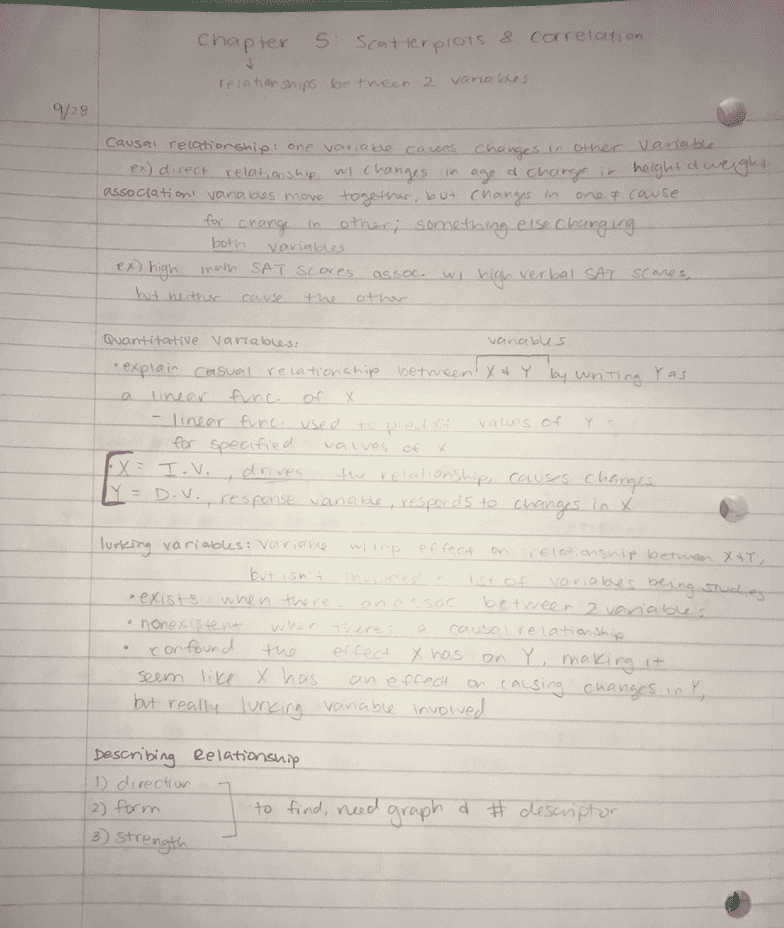 Chapter 5: Scatterplots & Correlation
↓
relationships between 2 variables
9/28
Causal relationship: one variable causes changes in other variable
ex) direct relationship w/ changes in age & change in height & weight
association: variables move together, but changes in one ≠ cause
for change in other; something else changing
both variables
ex) high math SAT scores assoc. w/ high verbal SAT scores,
but neither cause the other
Quantitative Variables:
variables
• explain casual relationship between X & Y by writing Y as
a linear func. of X
- linear func. used to predict values of Y
for specified values of X
• X = I.V., drives the relationship, causes changes
Y = D.V., response variable, responds to changes in X
lurking variables: variable w/ imp effect on relationship between X & Y,
but isn't included list of variables being studied
• exists when there an assoc between 2 variables
• nonexistent when there's a causal relationship
• confound the effect X has on Y, making it
seem like X has an effect on causing changes in Y,
but really lurking variable involved
Describing Relationship
1) direction
2) form to find, need graph & # descriptor
3) strength